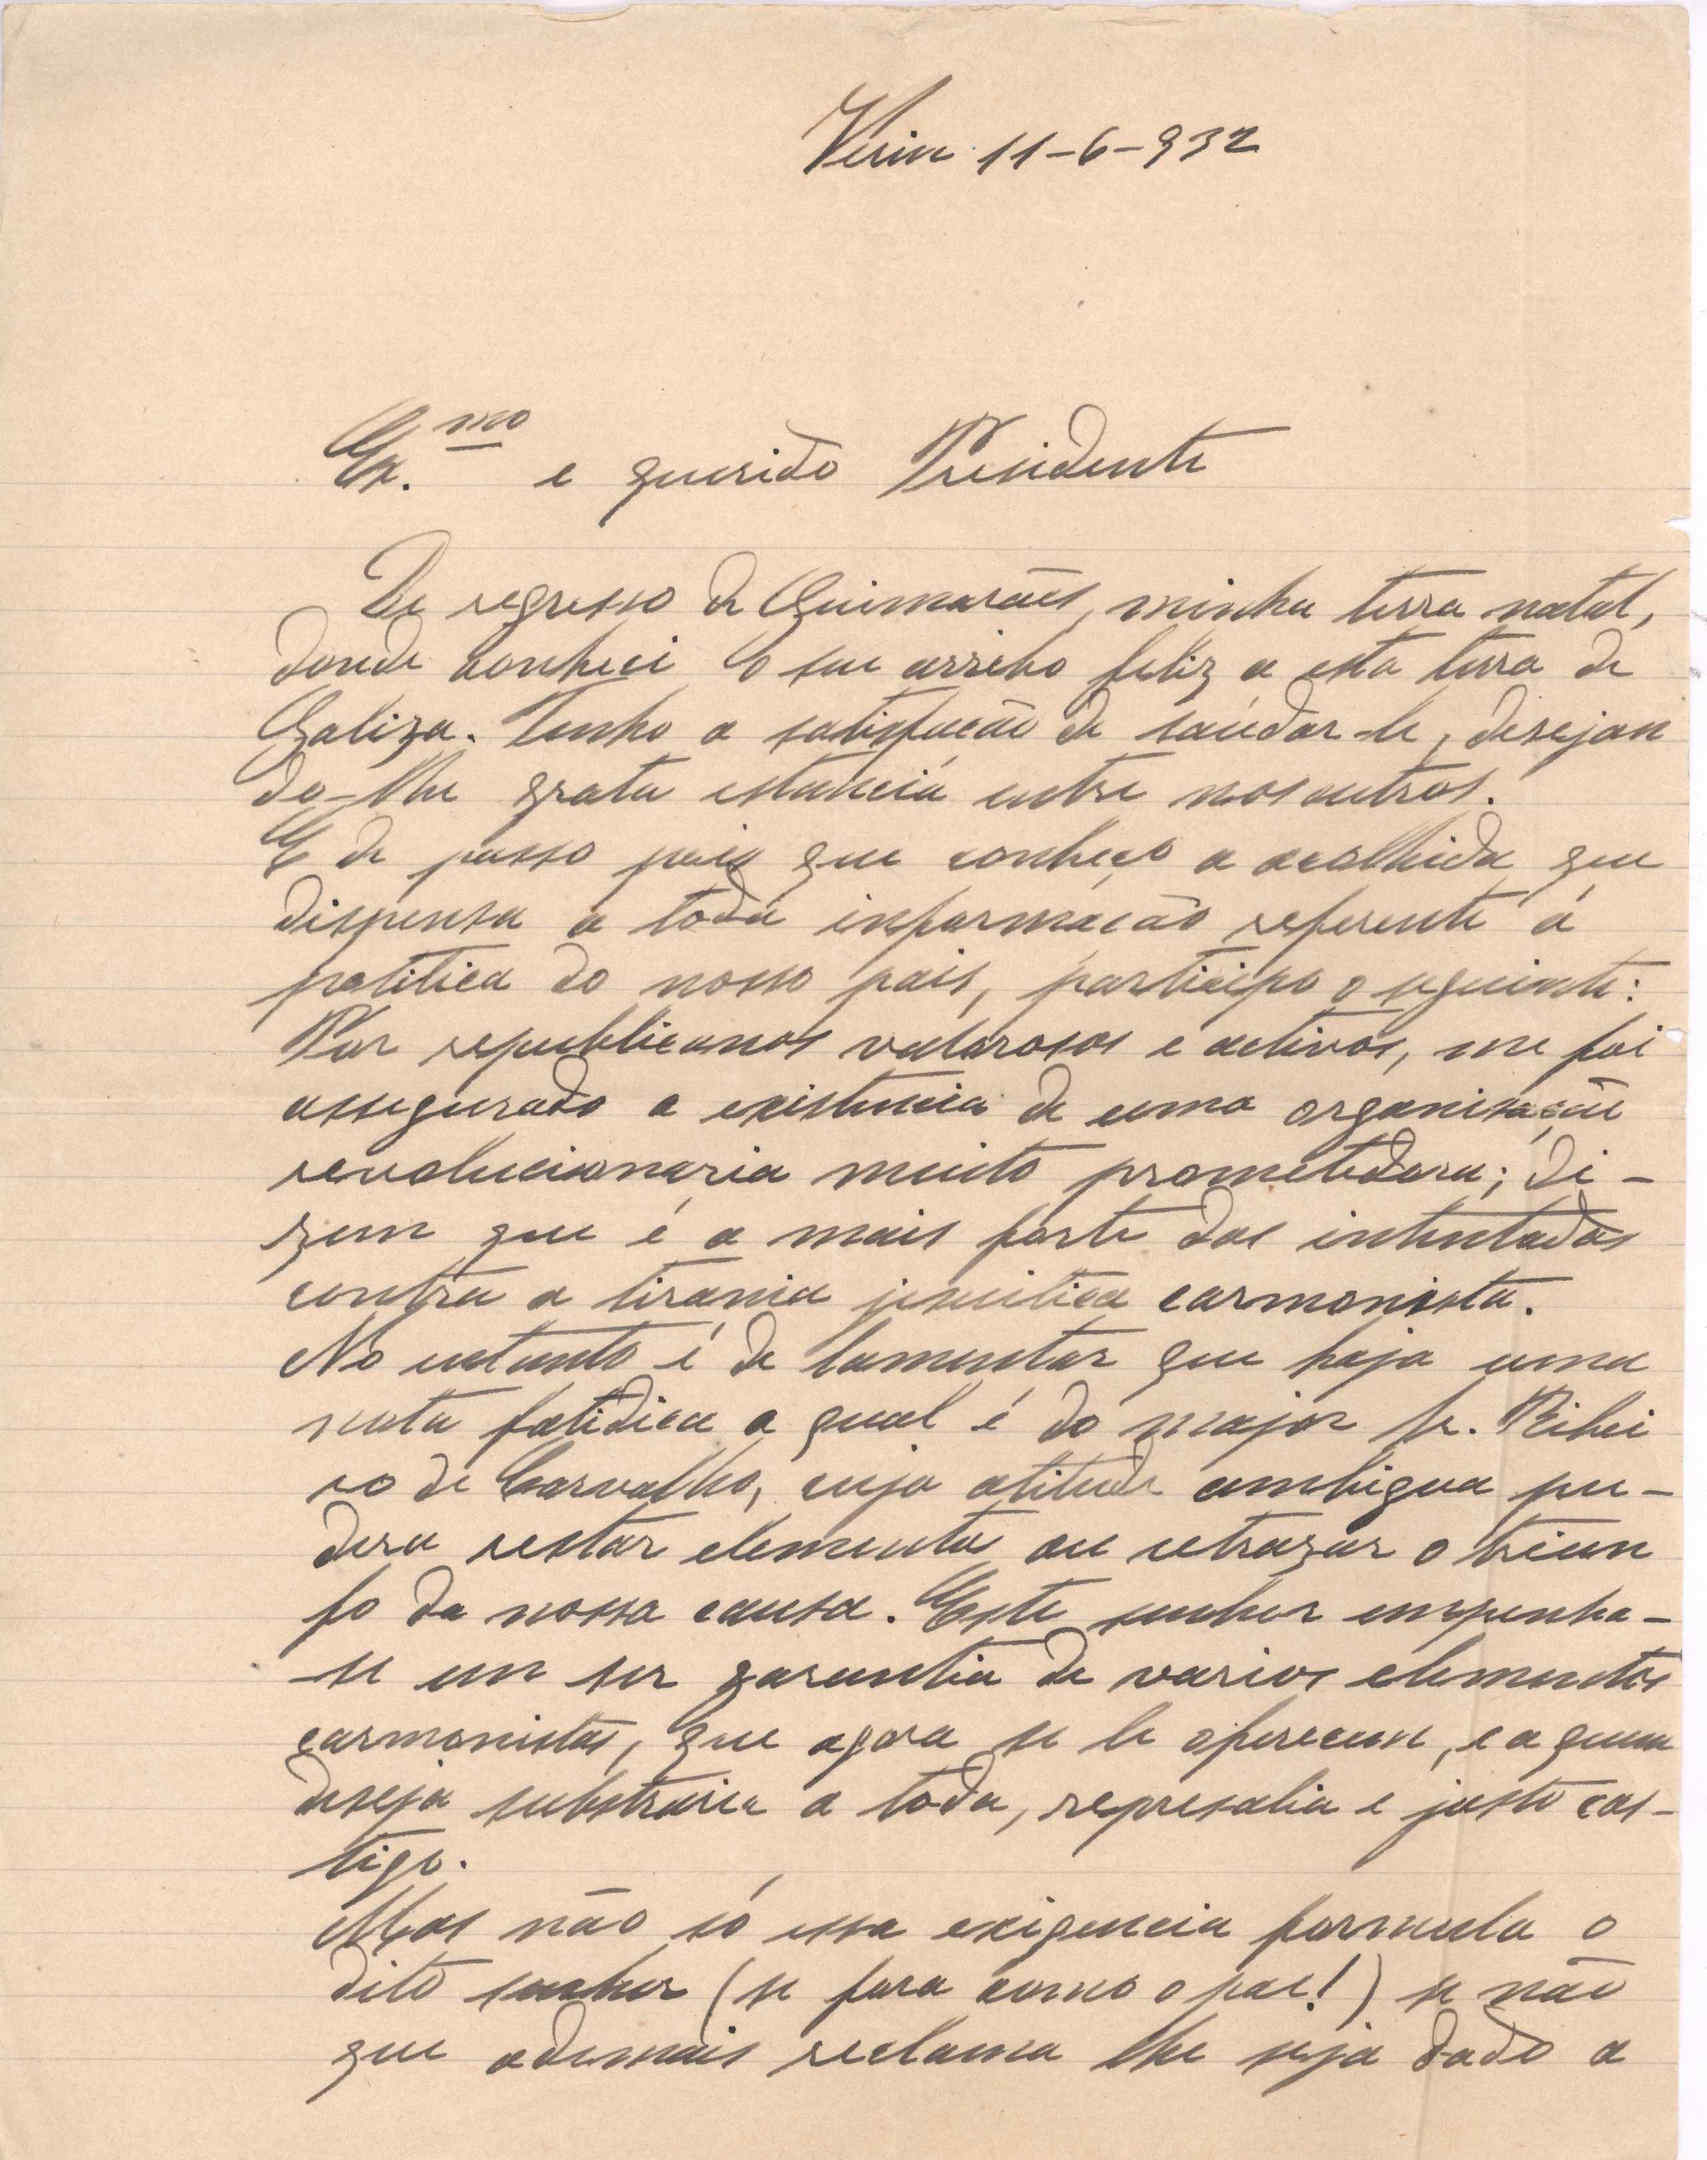 Verin 11-6-932
Ex.mo e querido Presidente
De regresso de Guimarães, minha terra natal,
donde conheci o seu arribo feliz a esta terra de
Galiza. Tenho a satisfação de saúdar-le, desejan
do-lhe grata estancia entre nosoutros.
E de passo pois que conheço a acolhida que
dispensa a toda informação referente á
politica do nosso pais, participo o seguinte:
Por republicanos valorosos e activos, me foi
assegurado a existencia de uma organisação
revolucionaria muito prometedora; di-
zem que é a mais forte das intentadas
contra a tirania jesuitica carmonista.
No entanto é de lamentar que haja uma
nota fatidica a qual é do major Sr. Ribei
ro de Carvalho, cuja atitude ambigua pu-
dera restar elementos ou retrazar o triun
fo da nossa causa. Este senhor empenha-
-se em ser garantia de varios elementos
carmonistas, que agora se le oferecem, e a quem
deseja substraria a toda, represalia e justo cas-
tigo.
Mas não só essa exigencia formula o
dito senhor (se fora como o pae!) se não
que ademais reclama lhe seja dado a